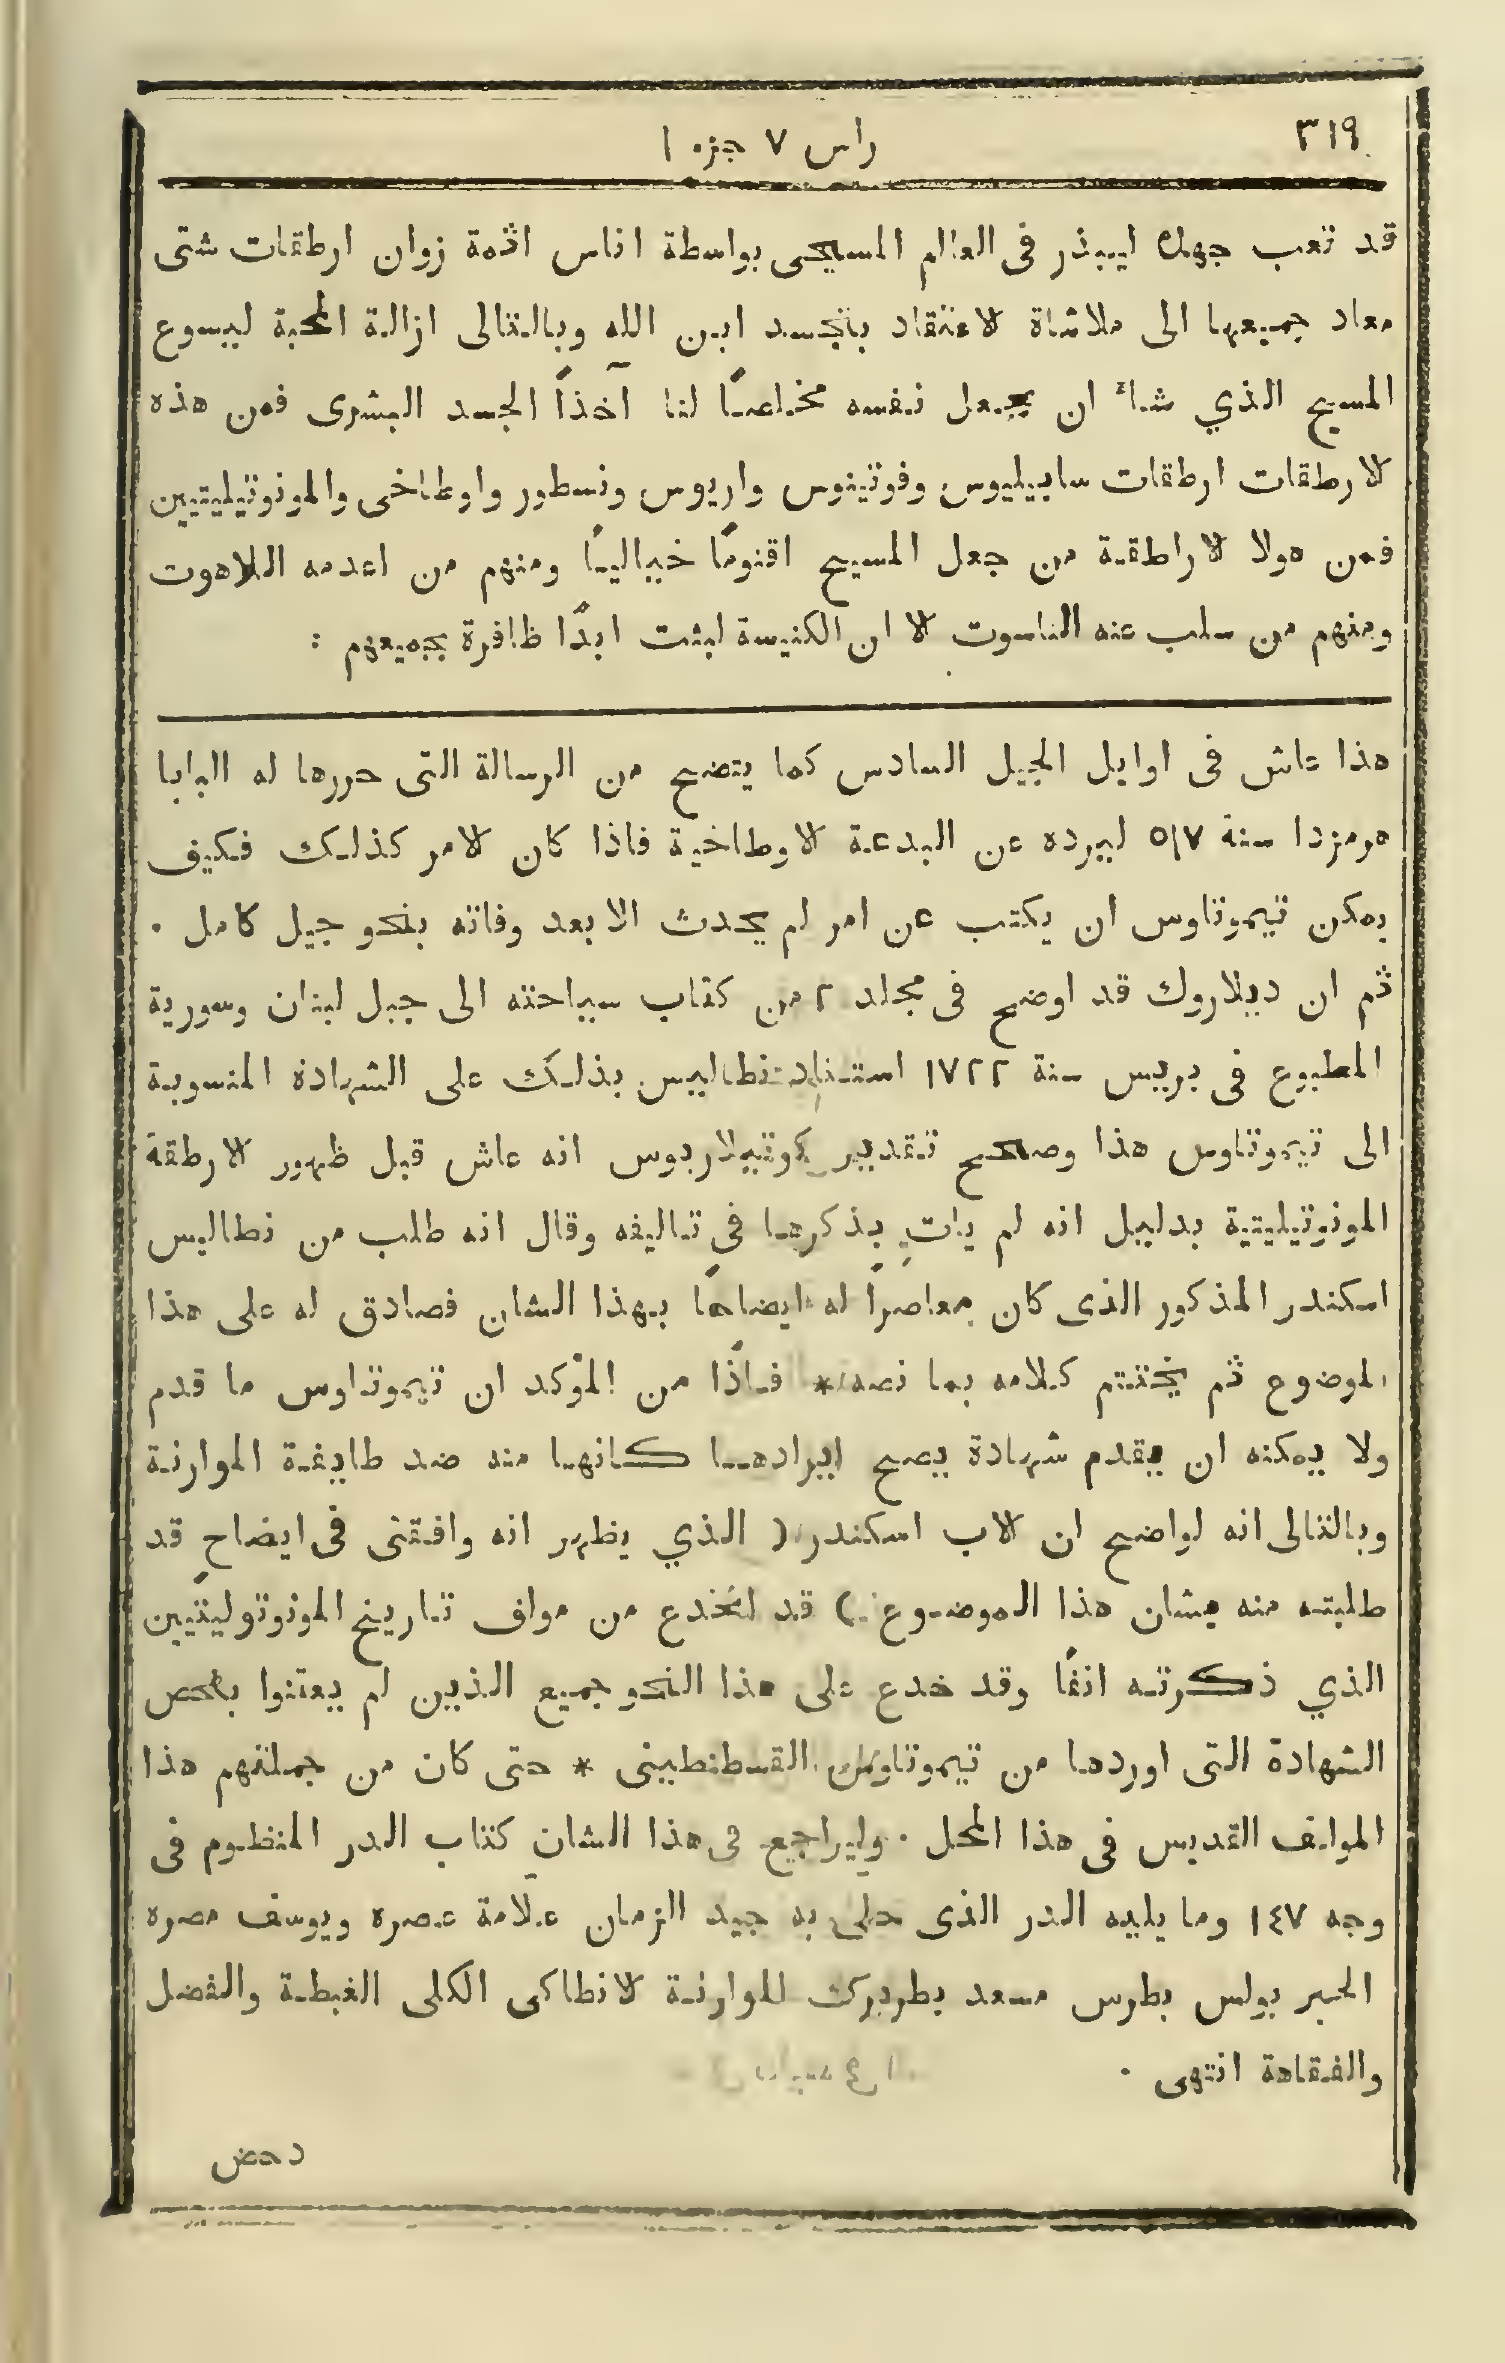 ٣١٩
راس ٧ جزء ١
قد تعب جهاد ليبذر فى العالم المسيحى بواسطة اناس اثمة زوان ارطقات شتى
معاد جميعها الى ملاشاة لاعتقاد بتجسد ابن الله وبالتالى ازالة المحبة ليسوع
المسيح الذي شاء ان يجعل نفسه مخلصًا لنا آخذًا الجسد البشرى فمن هذه
لارطقات ارطقات سابيليوس وفوتينوس واريوس ونسطور واوطاخى والمونوتيليتيين
فمن هولا لاراطقة من جعل المسيح اقنومًا خياليًا ومنهم من اعدمه اللاهوت
ومنهم من سلب عنه الناسوت لا ان الكنيسة لبثت ابدًا ظافرة بجميعهم :
هذا عاش فى اوايل الجيل السادس كما يتضح من الرسالة التى حررها له البابا
هرمزدا سنة ٥١٧ ليرده عن البدعة لاوطاخية فاذا كان لامر كذلك فكيف
يمكن تيموتاوس ان يكتب عن امر لم يحدث الا بعد وفاته بنحو جيل كامل .
ثم ان ديلاروك قد اوضح فى مجلد ٢ من كتاب سياحته الى جبل لبنان وسورية
المطبوع فى بريس سنة ١٧٢٢ استناد نطاليس بذلك على الشهادة المنسوبة
الى تيموتاوس هذا وصحح تقدير كوتيلاريوس انه عاش قبل ظهور لارطقة
المونوتيليتية بدليل انه لم يات بذكرها فى تاليفه وقال انه طلب من نطاليس
اسكندر المذكور الذى كان معاصرًا له ايضاحًا بهذا الشان فصادق له على هذا
الموضوع ثم يختتم كلامه بما نصه * فاذًا من المؤكد ان تيموتاوس ما قدم
ولا يمكنه ان يقدم شهادة يصح ايرادها كانها منه ضد طايفة الموارنة
وبالتالى انه لواضح ان لاب اسكندر ( الذي يظهر انه وافقنى فى ايضاح قد
طلبته منه بشان هذا الموضوع ) قد انخدع من مولف تاريخ المونوتوليتيين
الذي ذكرته انفًا وقد خدع على هذا النحو جميع الذين لم يعتنوا بفحص
الشهادة التى اوردها من تيموتاوس القسطنطينى * حتى كان من جملتهم هذا
المولف القديس فى هذا المحل . وليراجع فى هذا الشان كتاب الدر المنظوم فى
وجه ١٤٧ وما يليه الدر الذى حلى به جيد الزمان علامة عصره ويوسف مصره
الحبر بولس بطرس مسعد بطريرك الموارنة لانطاكى الكلى الغبطة والفضل
والفقاهة انتهى .
دحض